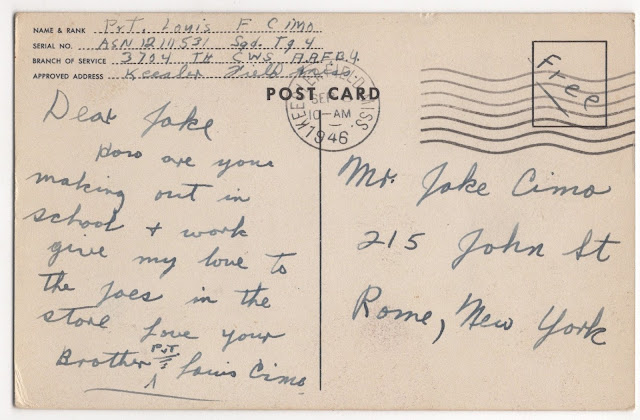 NAME & RANK Pvt. Louis F Cimo
SERIAL NO. ASN 12111531 Sqd. Tg 4
BRANCH OF SERVICE 3704 TH CWS AAFB.4.
APPROVED ADDRESS Keesler Field
POST CARD
KEESLER FIELD, MISS.
SEP
10-AM
1946
Free
Dear Jake
How are you
making out in
school + work
give my love to
the Joes in the
store Love your
Brother Pvt Louis Cimo
Mr. Jake Cimo
215 John St
Rome, New York